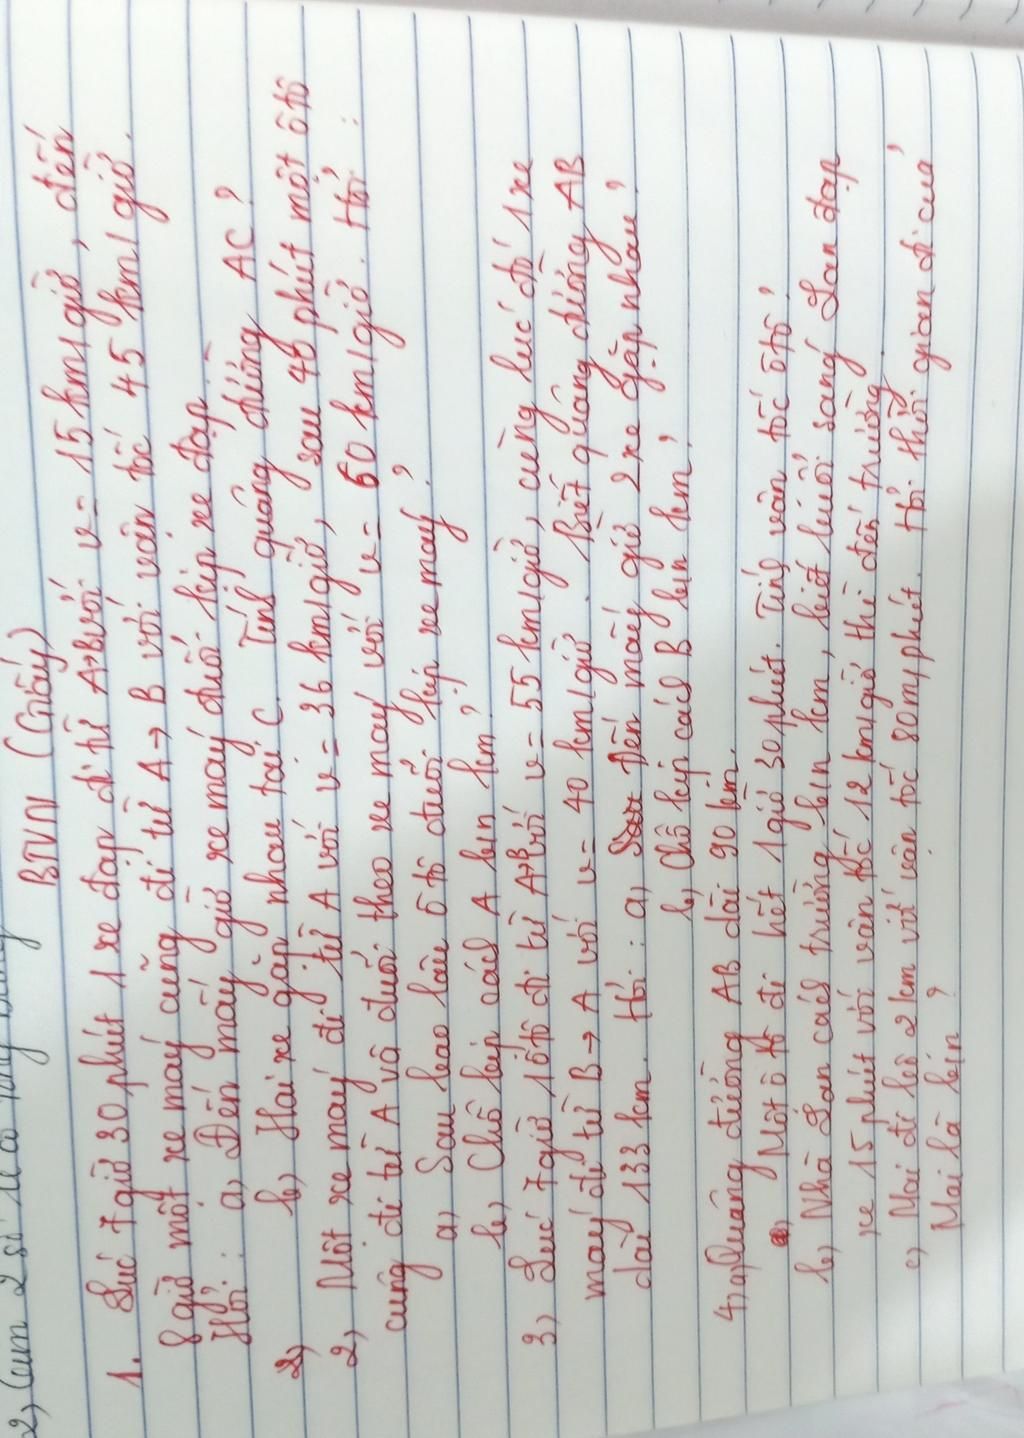 2, 2 số
BTVN (Giấy)
1. Lúc 7 giờ 30 phút 1 xe đạp đi từ A→B với v = 15 km/giờ, đến
8 giờ một xe máy cũng đi từ A→B với vận tốc 45 km/giờ.
Hỏi: a, Đến mấy giờ xe máy đuổi kịp xe đạp.
b, Hai xe gặp nhau tại C. Tính quãng đường AC?
2, Một xe máy đi từ A với v = 36 km/giờ, sau 45 phút một ôtô
cũng đi từ A và đuổi theo xe máy với v = 60 km/giờ. Hỏi:
a, Sau bao lâu ôtô đuổi kịp xe máy?
b, Chỗ kịp cách A bn km?
3, Lúc 7 giờ 1 ôtô đi từ A→B với v = 55 km/giờ, cùng lúc đó 1 xe
máy đi từ B→A với v = 40 km/giờ. Biết quãng đường AB
dài 133 km. Hỏi: a, Đến mấy giờ 2 xe gặp nhau?
b, Chỗ kịp cách B bn km?
4, a, Quãng đường AB dài 90 km.
Một ô tô đi hết 1 giờ 30 phút. Tính vận tốc ôtô?
b, Nhà Lan cách trường bn km, biết buổi sáng Lan đạp
xe 15 phút với vận tốc 12 km/giờ thì đến trường.
c, Mai đi bộ 2 km với vận tốc 80m/phút. Hỏi thời gian đi của
Mai là bn?